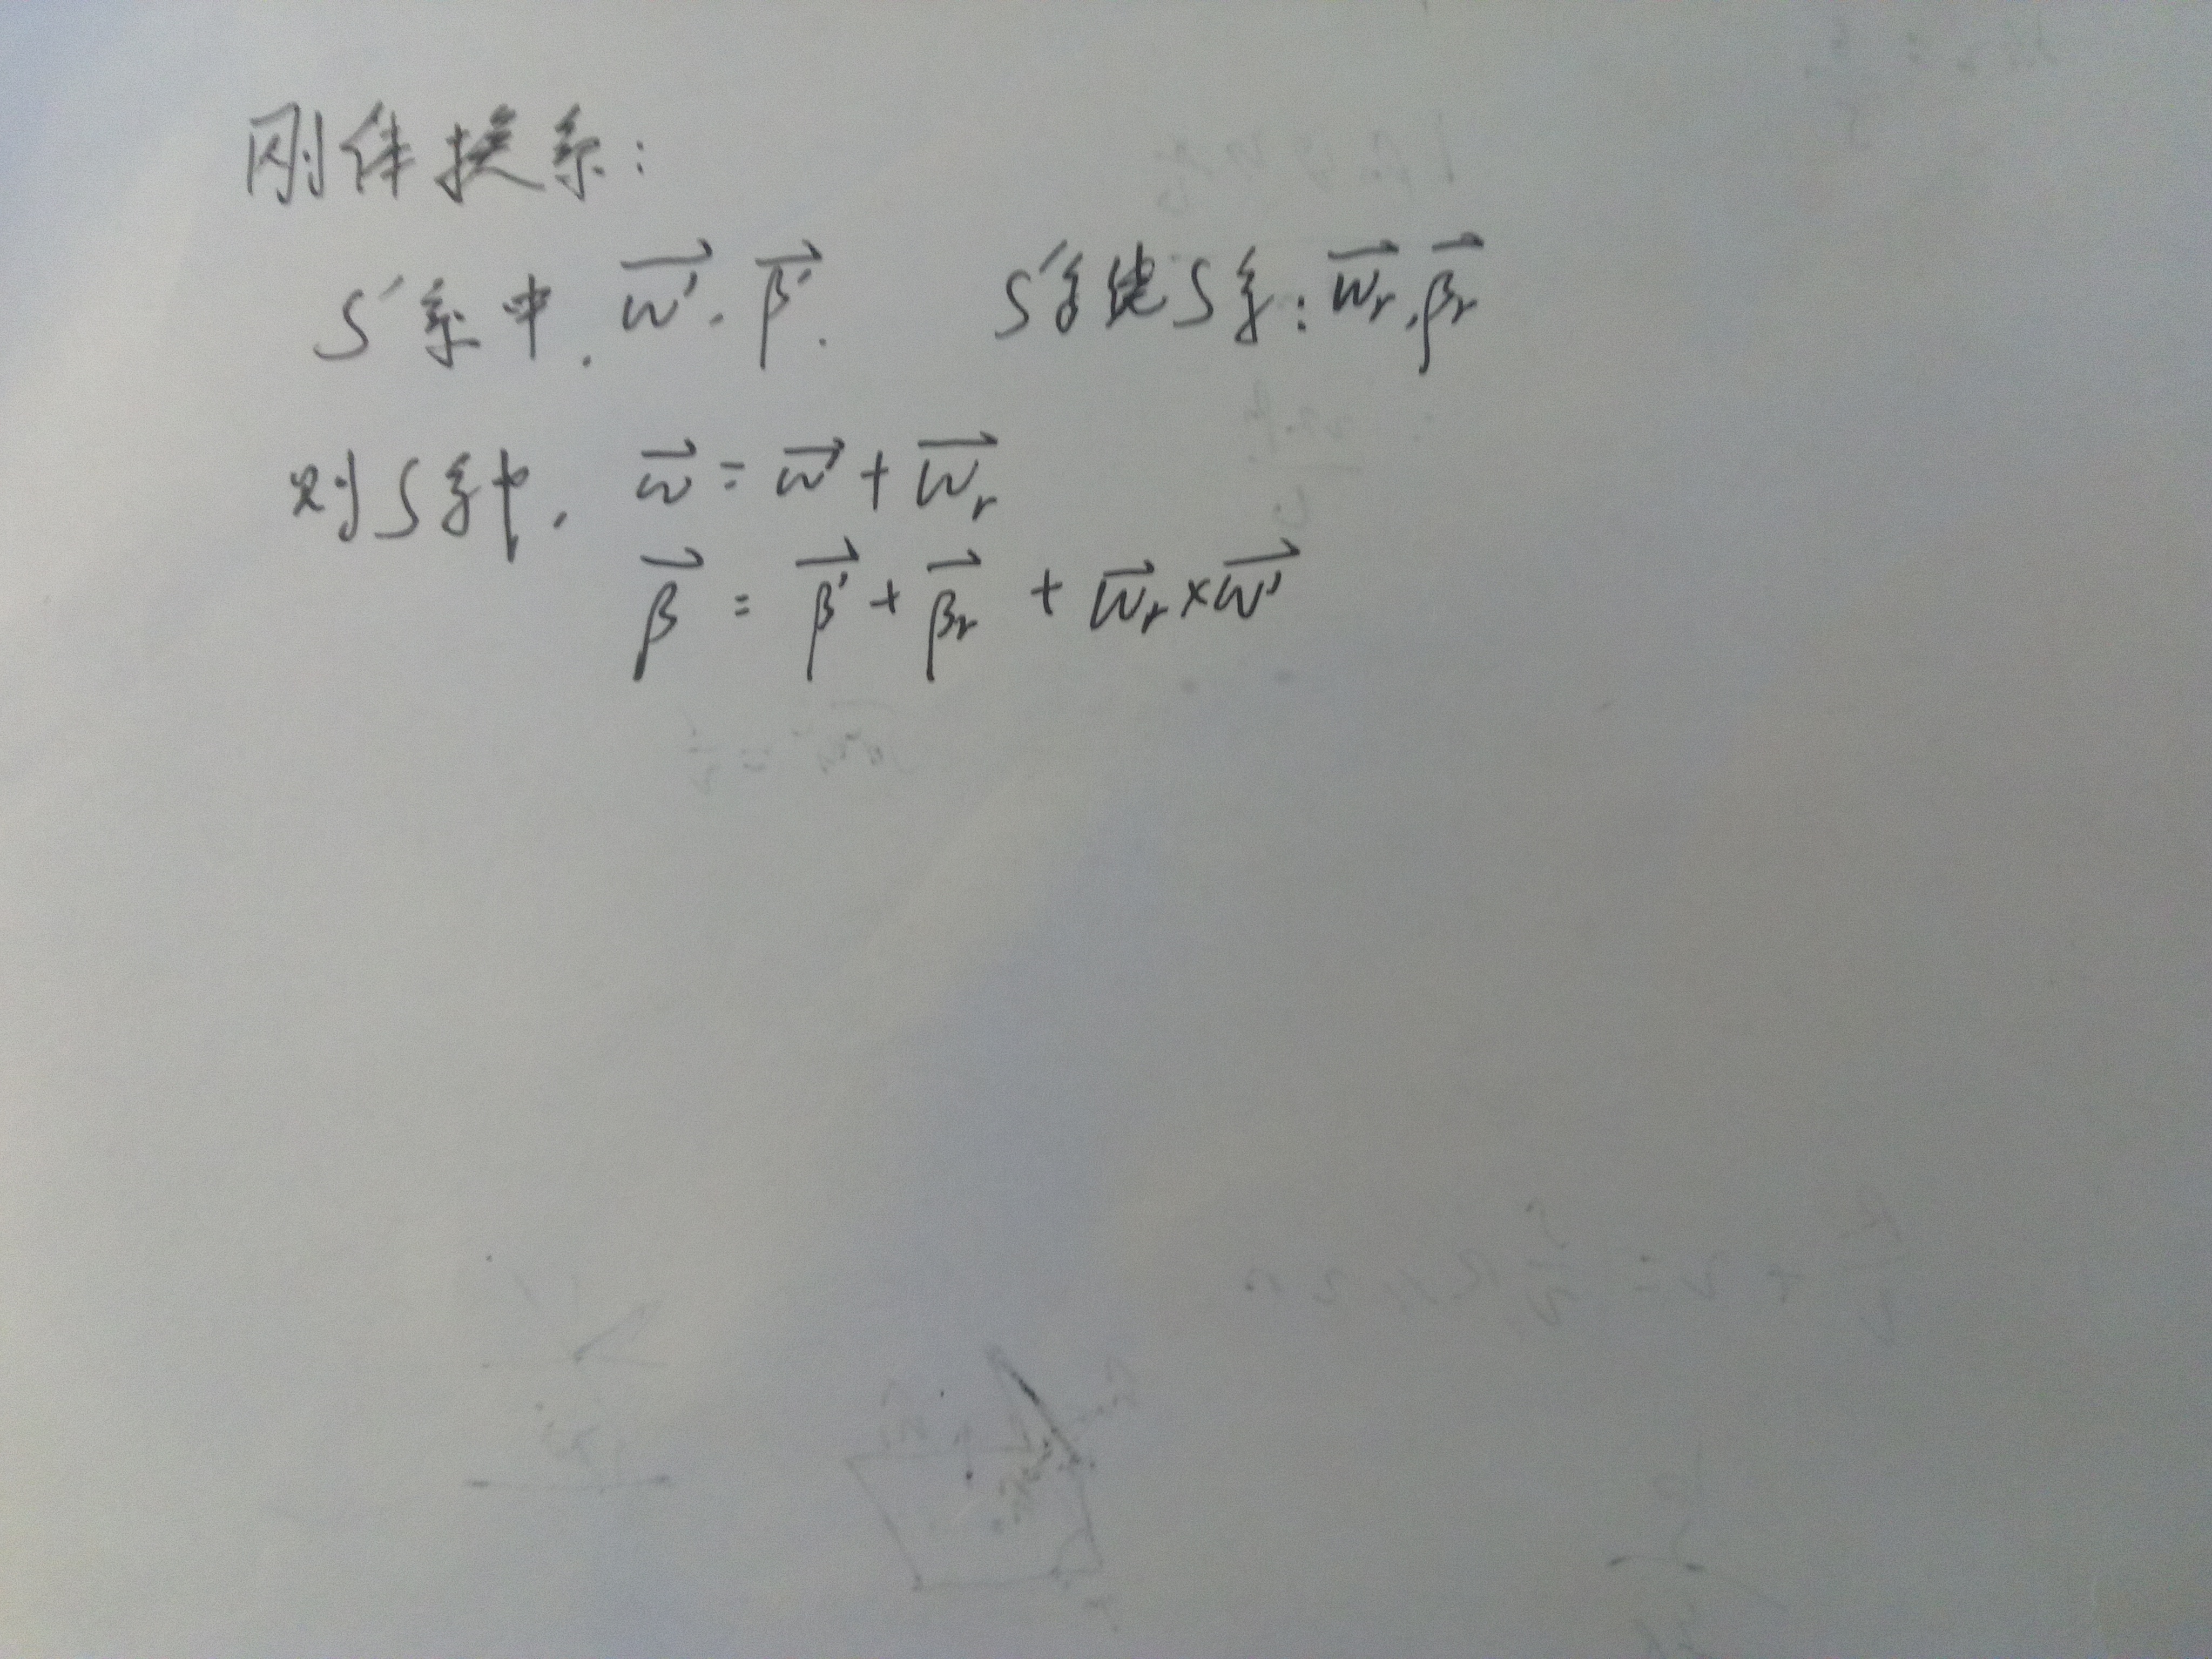 刚体换系:
S′系中. ω⃗′. β⃗′. S′系绕S系: ω⃗ᵣ, β⃗ᵣ
对S系中, ω⃗ = ω⃗′ + ω⃗ᵣ
β⃗ = β⃗′ + β⃗ᵣ + ω⃗ᵣ × ω⃗′